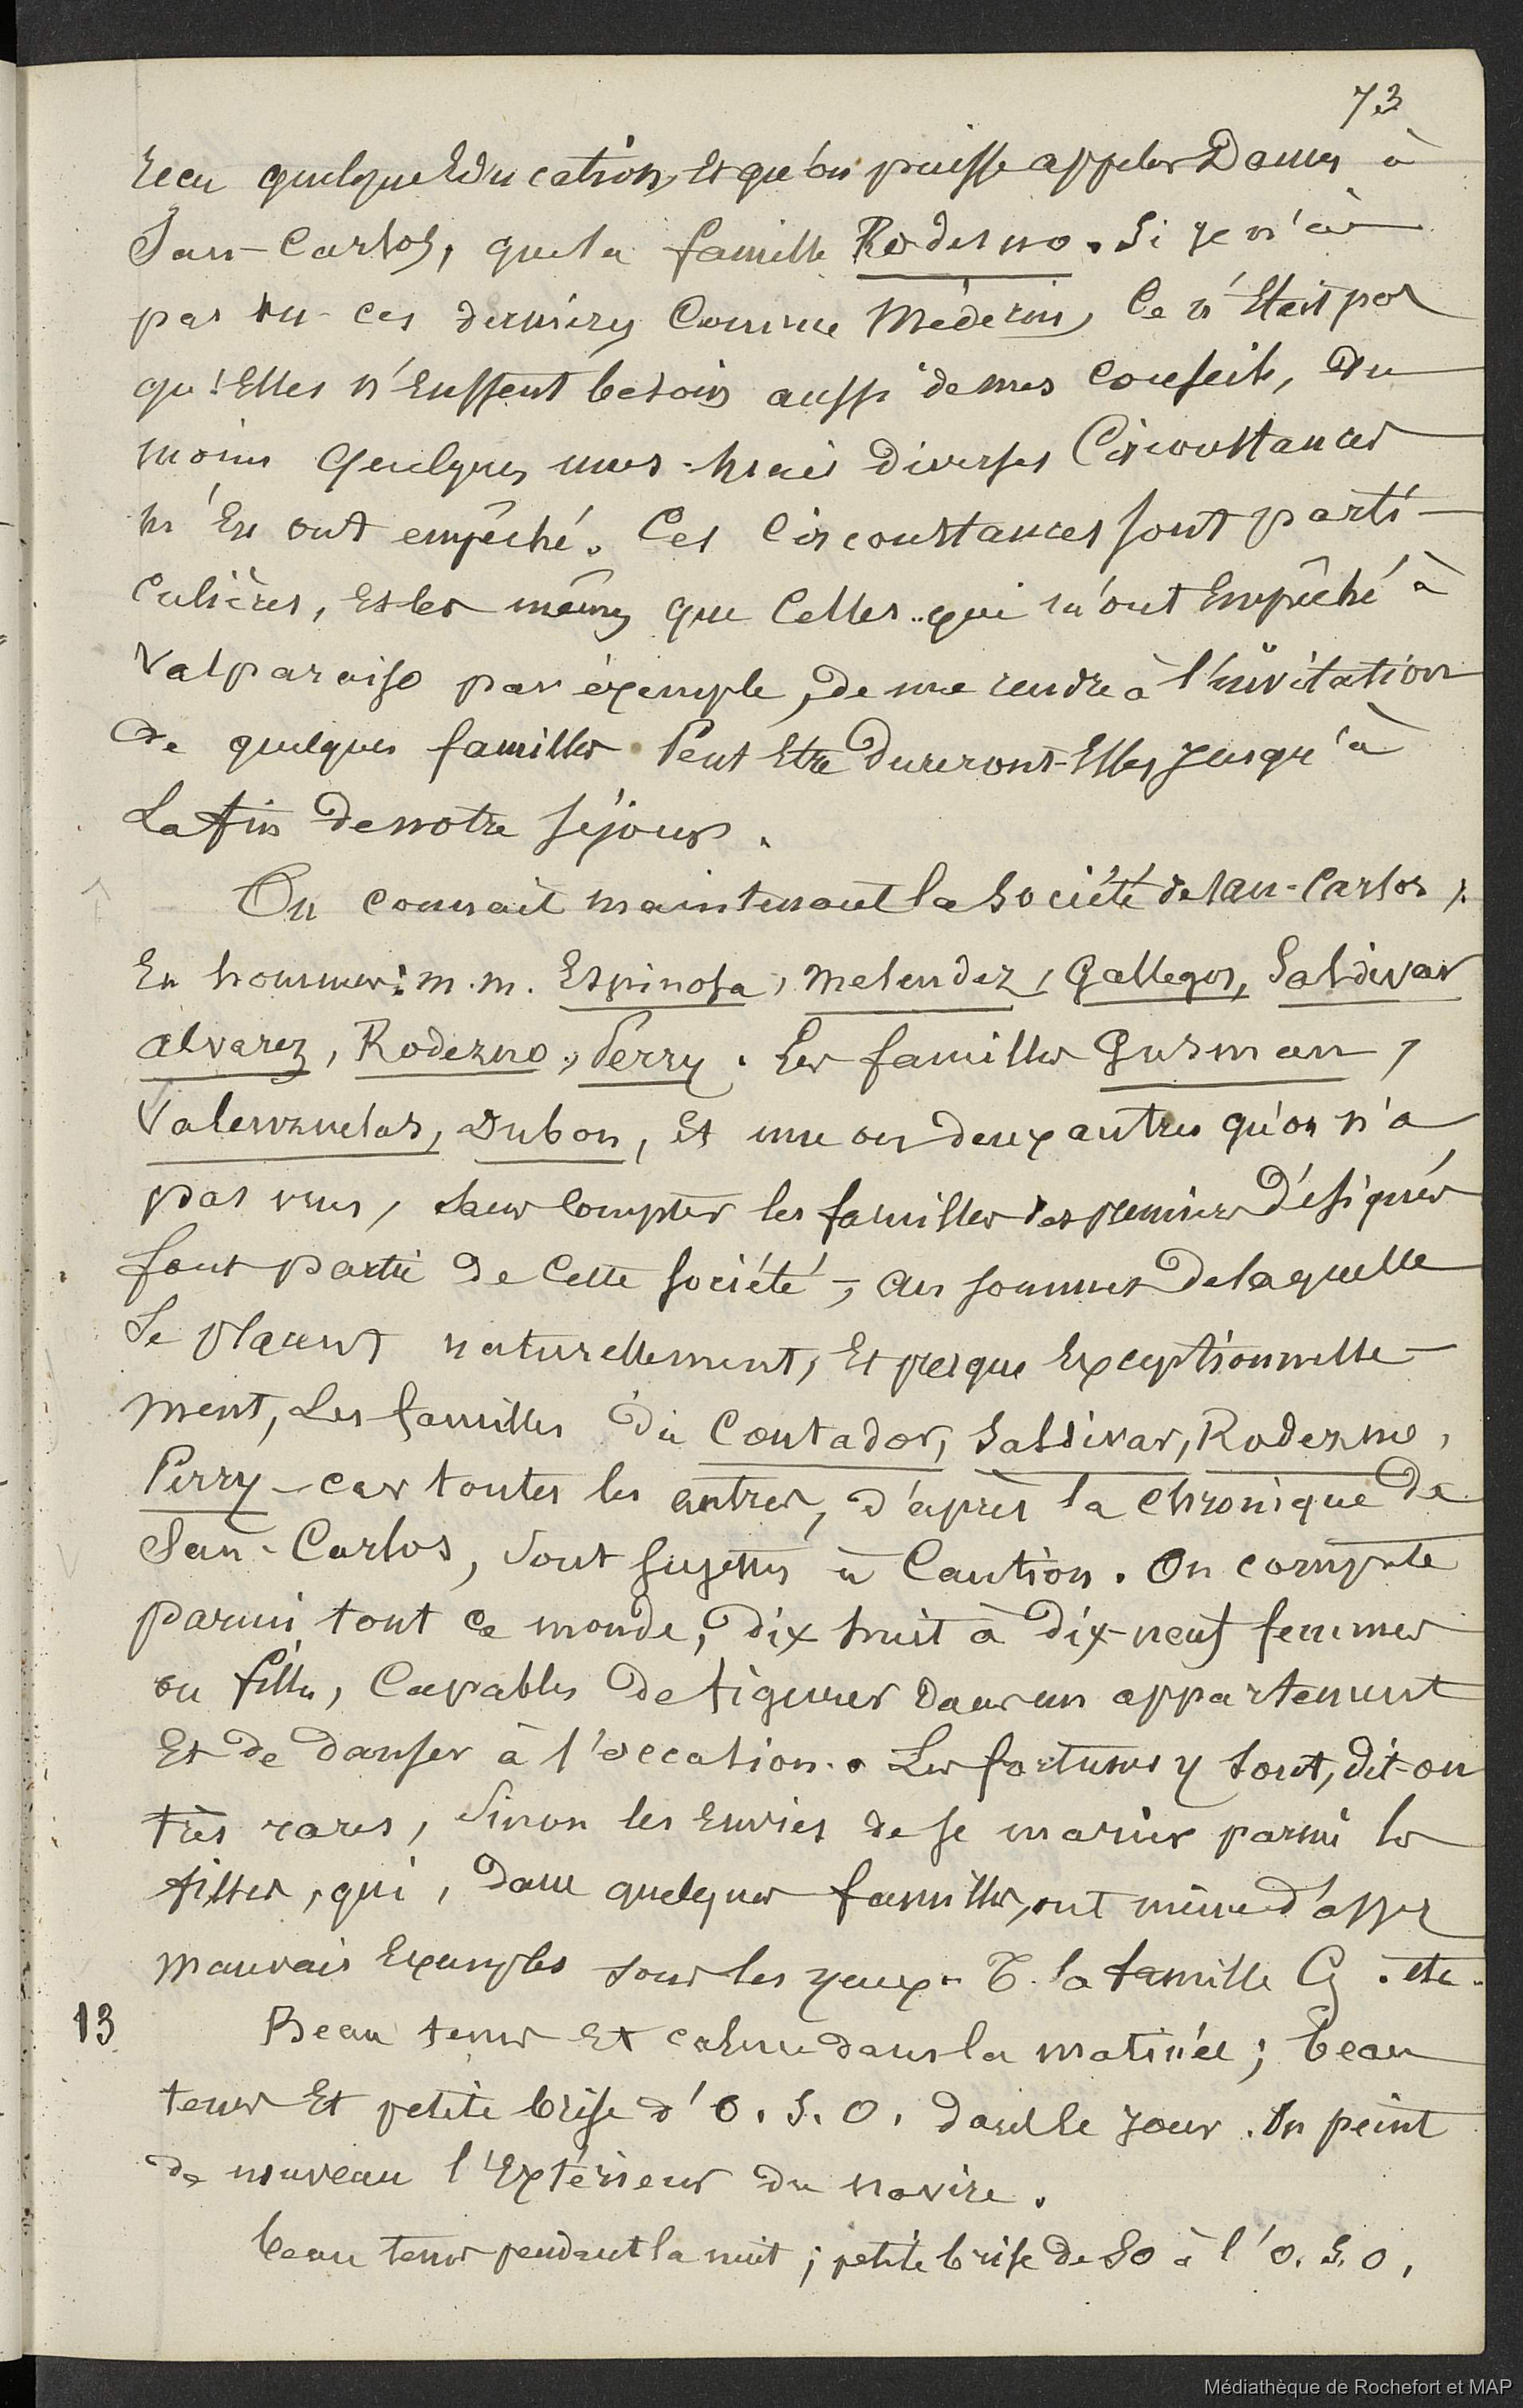 73
recu quelque Education, Et qu'on puisse appeler Dames à
San-Carlos, que la famille Rodesno. Si je n'ai
pas vu ces dernières Comme Médecin, Ce n'Etait pas
qu'Elles n'Eussent besoin aussi de mes Conseils, Du
moins quelques unes - mais diverses Circonstances
m'En ont empêché. Ces Circonstances sont parti-
culières, Et les mêmes que Celles qui m'ont Empêché à
Valparaiso par éxemple, de me rendre à l'invitation
de quelques familles. Peut Etre dureront-Elles jusqu'à
La fin de notre séjour.
On connait maintenant la Société de San-Carlos;
En hommes: m.m. Espinosa, Melendez, Gallegos, Saldivar
Alvarez, Rodezno, Perry. Les familles Gusman,
Valenzuelas, Dubon, Et une ou deux autres qu'on n'a
pas vues, sans Compter les familles des premiers Désignés
font partie de Cette société, au sommet de laquelle
Se placent naturellement, Et presque Exceptionnelle-
ment, Les familles du Contador, Saldivar, Rodezno,
Perry - car toutes les autres, d'après la chronique de
San-Carlos, sont sujettes à Caution. On compte
parmi tout ce monde, dix huit à dix-neuf femmes
ou filles, Capables de figurer dans un appartement
Et de danser à l'occasion. Les fortunes y sont, dit-on
très rares, Sinon les Envies de se marier parmi les
filles, qui, dans quelques familles, ont même d'assez
mauvais Exemples sous les yeux. T. la famille G. etc.
13 Beau tems Et calme dans la matinée; beau
tems Et petite brise d'O.S.O. dans le jour. On peint
de nouveau l'Extérieur du navire.
beau tems pendant la nuit; petite brise de SO à l'O.S.O.
Médiathèque de Rochefort et MAP